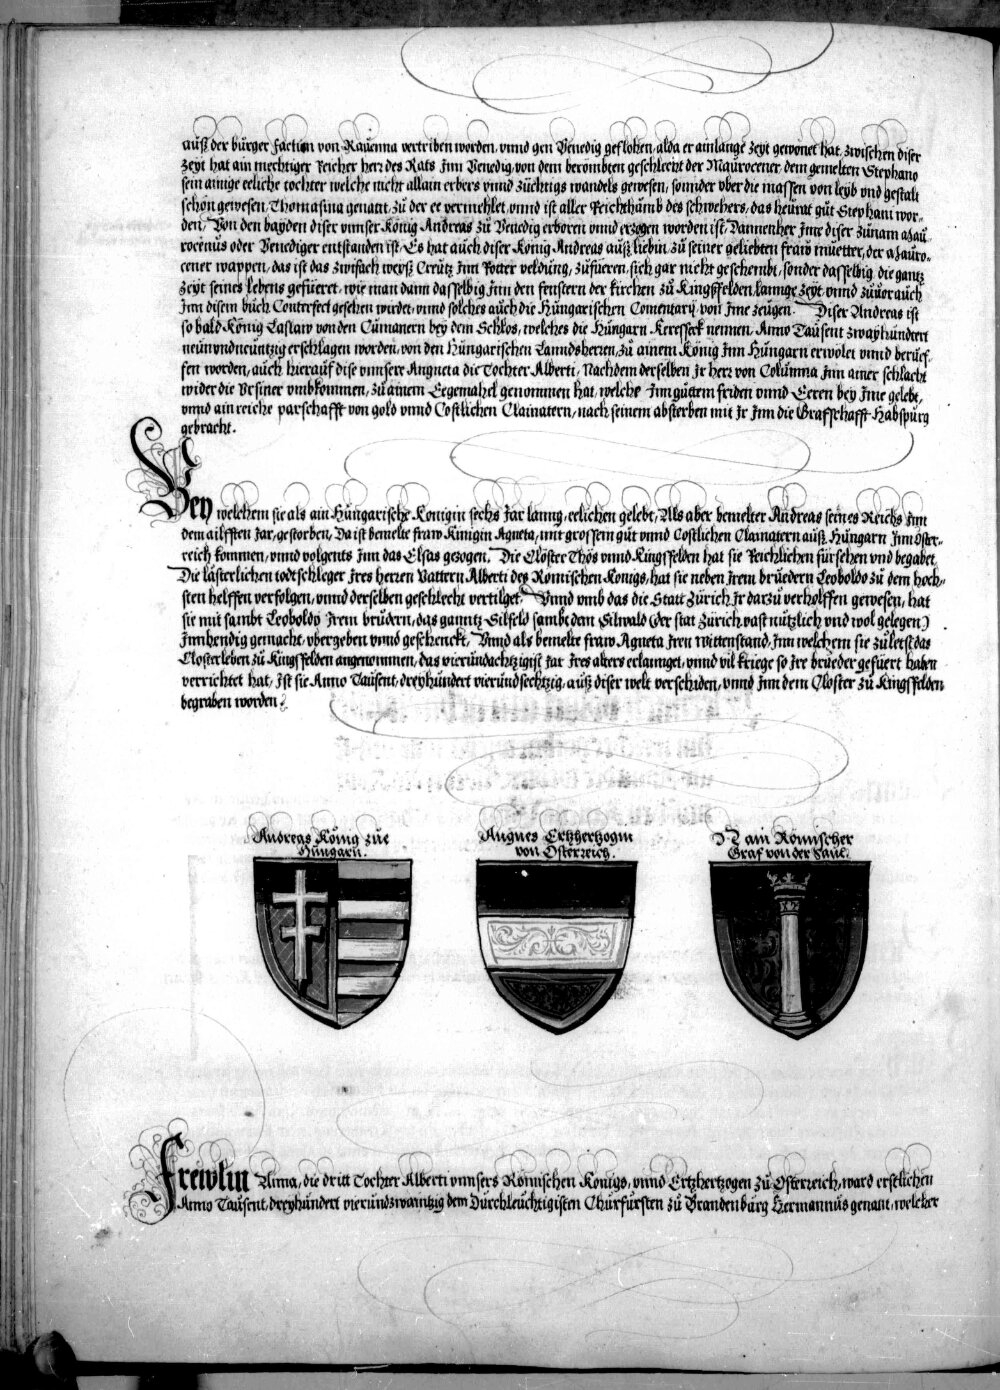 auß der burger faction von Rauenna vertriben worden, vnnd gen Venedig geflohen, alda er ain lange zeyt gewonet hat, zwischen diser
zeyt hat ain mechtiger Reicher herr des Rats Jnn Venedig, von dem berombten geschlecht der Maurocener, dem gemelten Stephano
sein ainige eeliche tochter welche nicht allain erbers vnnd züchtigs wandels gewesen, sonnder vber die massen von leyb vnd gestalt
schön gewesen, Thomasina genant, zu der ee vermehlet, vnnd ist aller Reichthumb des schwehers, das heurat gut Stephani wor-
den, Von den bayden diser vnnser König Andreas zu Venedig erboren vnnd erzogen worden ist, Dannenher Jme diser zunam Mau-
rocenus oder Venediger entstanden ist. Es hat auch diser König Andreas auß liebin zu seiner geliebten fraw muetter, der Mauro-
cener wappen, das ist das zwifach weyß Creutz Jnn Rotter veldung, zufueren, sich gar nicht geschembt, sonder dasselbig die gantz
zeyt seines lebens gefueret, wie man dann dasselbig Jnn den fenstern der kirchen zu Kingsfelden, lannge zeyt, vnnd zuuor auch
Jnn disem buch Conterfect gesehen wurdet, vnnd solches auch die Hungarischen Comentary, von Jme zeugen. Diser Andreas ist
so bald König Caslaw von den Cumanern bey dem Schlos, welches die Hungarn Keresseck nennen, Anno Tausent zwayhundert
neunvndneuntzig erschlagen worden, von den Hungarischen Lanndsherren, zu ainem König Jnn Hungarn erwölet vnnd berüef-
fen worden, auch hierauf dise vnnsere Angneta die Tochter Alberti, Nachdem derselben Jr herr von Columna Jnn ainer schlacht
wider die Vrsiner vmbkommen, zu ainem Eegemahel genommen hat, welche Jnn guttem friden vnnd Eeren bey Jme gelebt,
vnnd ain reiche parschafft von gold vnnd Costlichen Clainatern, nach seinem absterben mit Jr Jnn die Grafschafft Habspurg
gebracht.
Bey welchem sie als ain Hungarische Konigin sechs Jar lanng, eelichen gelebt, Als aber bemelter Andreas seines Reichs Jnn
dem ailfften Jar, gestorben, Da ist bemelte fraw Kinigin Agneta, mit grossem gut vnnd Costlichen Clainatern auß Hungarn Jnn Öster-
reich kommen, vnnd volgents Jnn das Elsas gezogen. Die Clöster Thös vnnd Kingsfelden hat sie Reichlichen fürsehen vnd begabet
Die lästerlichen todtschleger Jres herren Vattern Alberti des Römischen Königs, hat sie neben Jrem bruedern Leopoldo zu dem hoch-
sten helffen verfolgen, vnnd derselben geschlecht vertilget. Vnnd vmb das die Statt Zürich Jr darzu verholffen gewesen, hat
sie mit sambt Leopoldo Jrem brudern, das ganntz Silfeld sambt dem Silwald (der stat Zürich vast nutzlich vnd wol gelegen)
Jnnhendig gemacht, vbergeben vnnd geschenckt. Vnnd als bemelte fraw Agneta Jren wittenstand, Jnn welchem sie zuletst das
Closterleben zu Kingsfelden angenommen, das vierundachtzigist Jar Jres alters erlannget, vnnd vil kriege so Jre brueder gefüert haben
verrichtet hat, Jst sie Anno Tausent, dreyhundert vierundsechtzig, auß diser welt verschiden, vnnd Jnn dem Closter zu Kingsfelden
begraben worden.
Andreas König zue
Hungarn.
Angnes Ertzhertzogin
von Österreich.
N ain Römischer
Graf von der Saul.
Frewlin Anna, die dritt Tochter Alberti vnnsers Römischen Königs, vnnd Ertzhertzogen zu Osterreich, ward erstlichen
Anno Tausent, dreyhundert vierundzwaintzig dem Durchleuchtigisten Churfürsten zu Brandenburg Hermannus genant, welcher